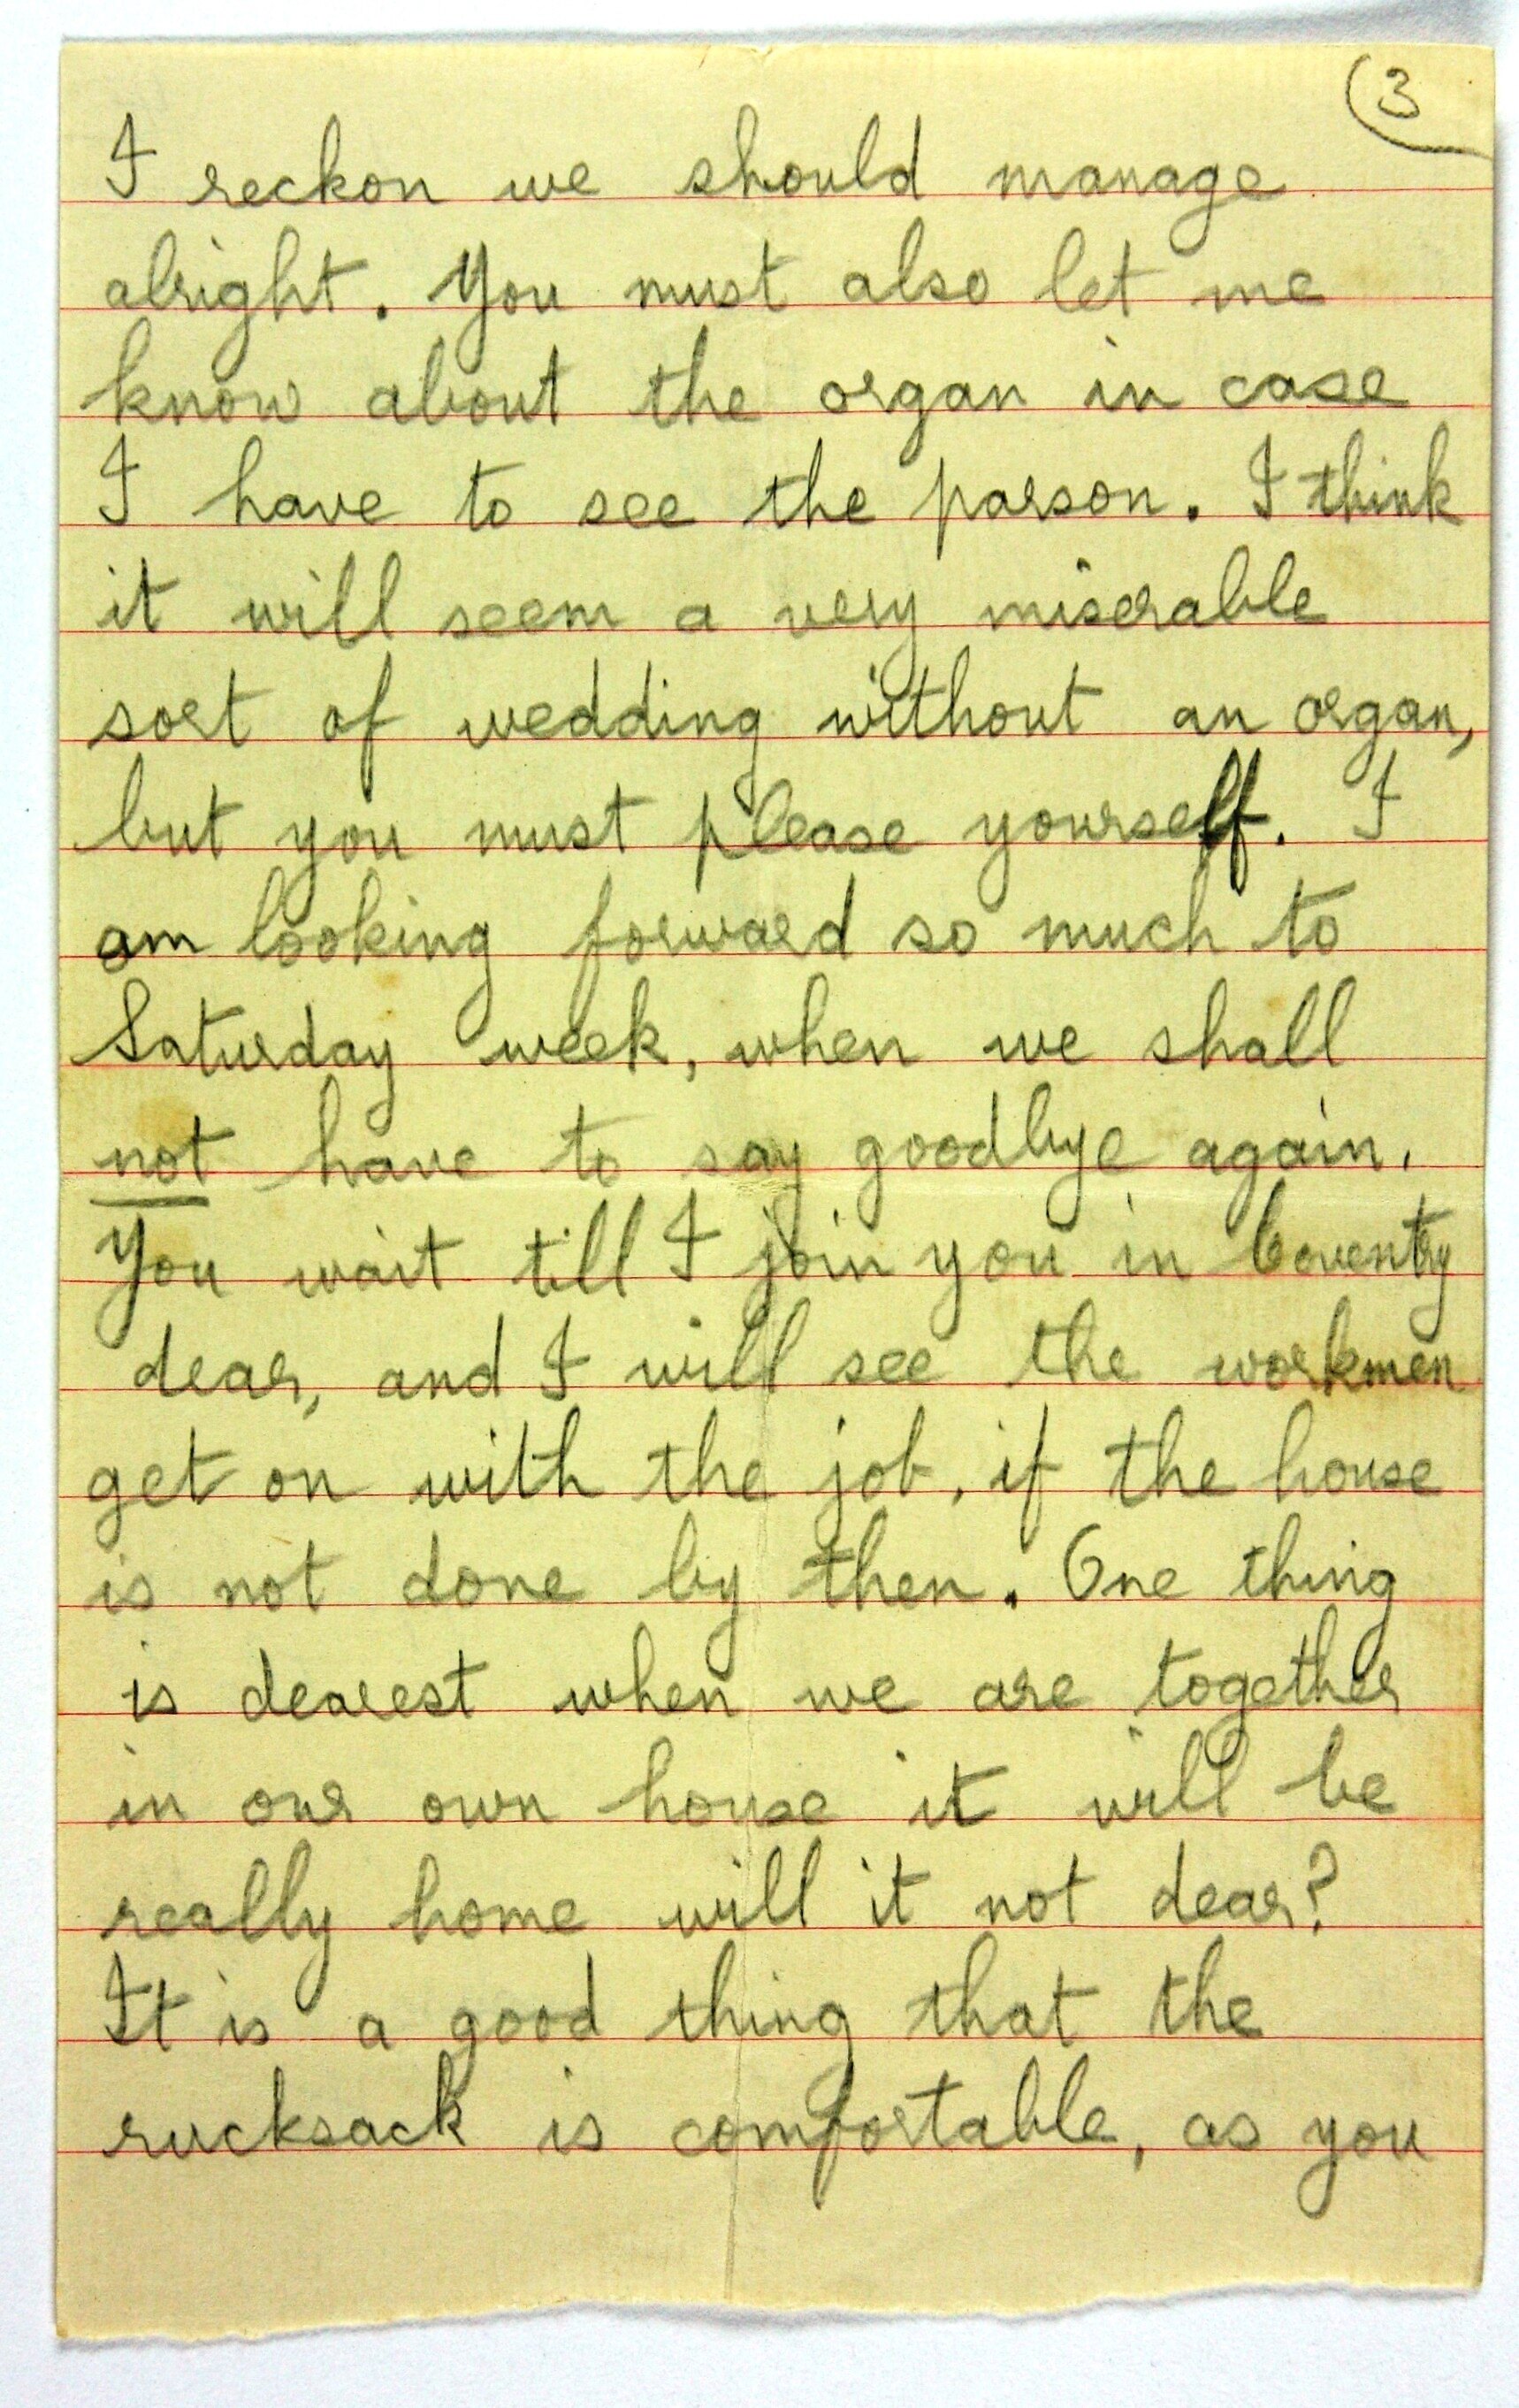 3
I reckon we should manage
alright. You must also let me
know about the organ in case
I have to see the parson. I think
it will seem a very miserable
sort of wedding without an organ,
but you must please yourself. I
am looking forward so much to
Saturday week, when we shall
not have to say goodbye again.
You wait till I join you in Coventry
dear, and I will see the workmen
get on with the job, if the house
is not done by then. One thing
is dearest when we are together
in our own house it will be
really home will it not dear?
It is a good thing that the
rucksack is comfortable, as you